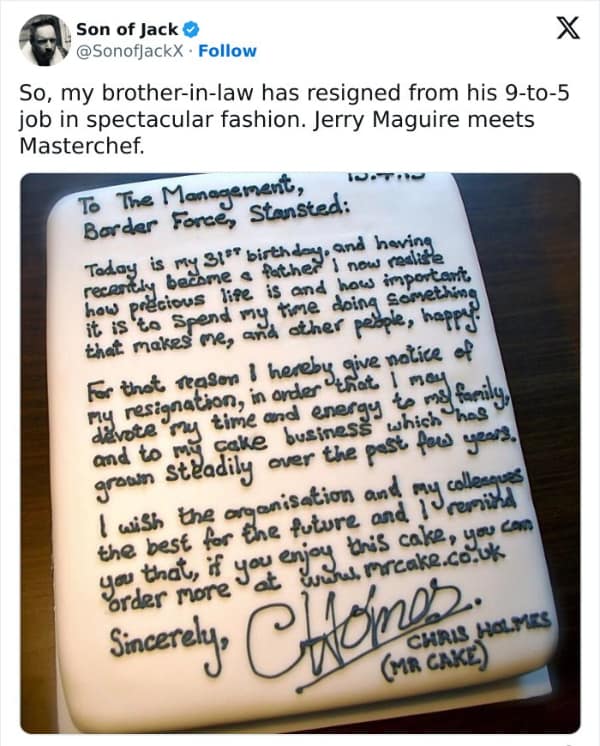 Son of Jack
X
@SonofJackX · Follow
So, my brother-in-law has resigned from his 9-to-5
job in spectacular fashion. Jerry Maguire meets
Masterchef.
To The Management,
Border Force, Stansted:
Today is my 31ST birthday, and having
recently become a father I now realise
how precious life is and how important
it is to spend my time doing something
that makes me, and other people, happy.
For that reason I hereby give notice of
my resignation, in order that I may
devote my time and energy to my family,
and to my cake business which has
grown steadily over the past few years.
I wish the organisation and my colleagues
the best for the future and I remind
you that, if you enjoy this cake, you can
order more at www.mrcake.co.uk
Sincerely,
CHolmes.
CHRIS HOLMES
(MR CAKE)